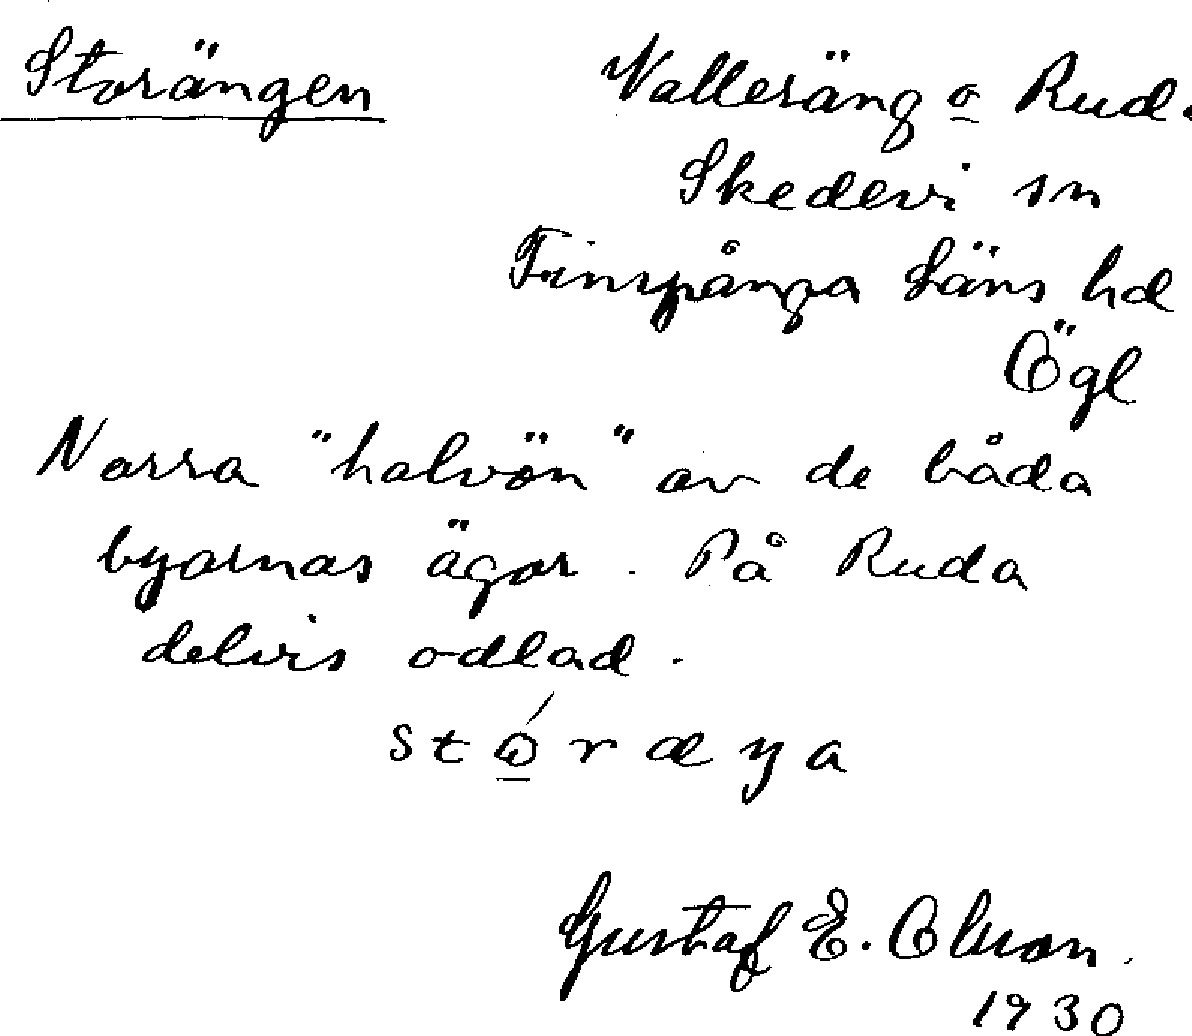 Storängen
Valleräng o Rud.
Skedevi sn
Finspånga Läns hd
Ögl
Norra "halvön" av de båda
byarnas ägor. På Ruda
delvis odlad.
Gustaf E. Olsson.
1930